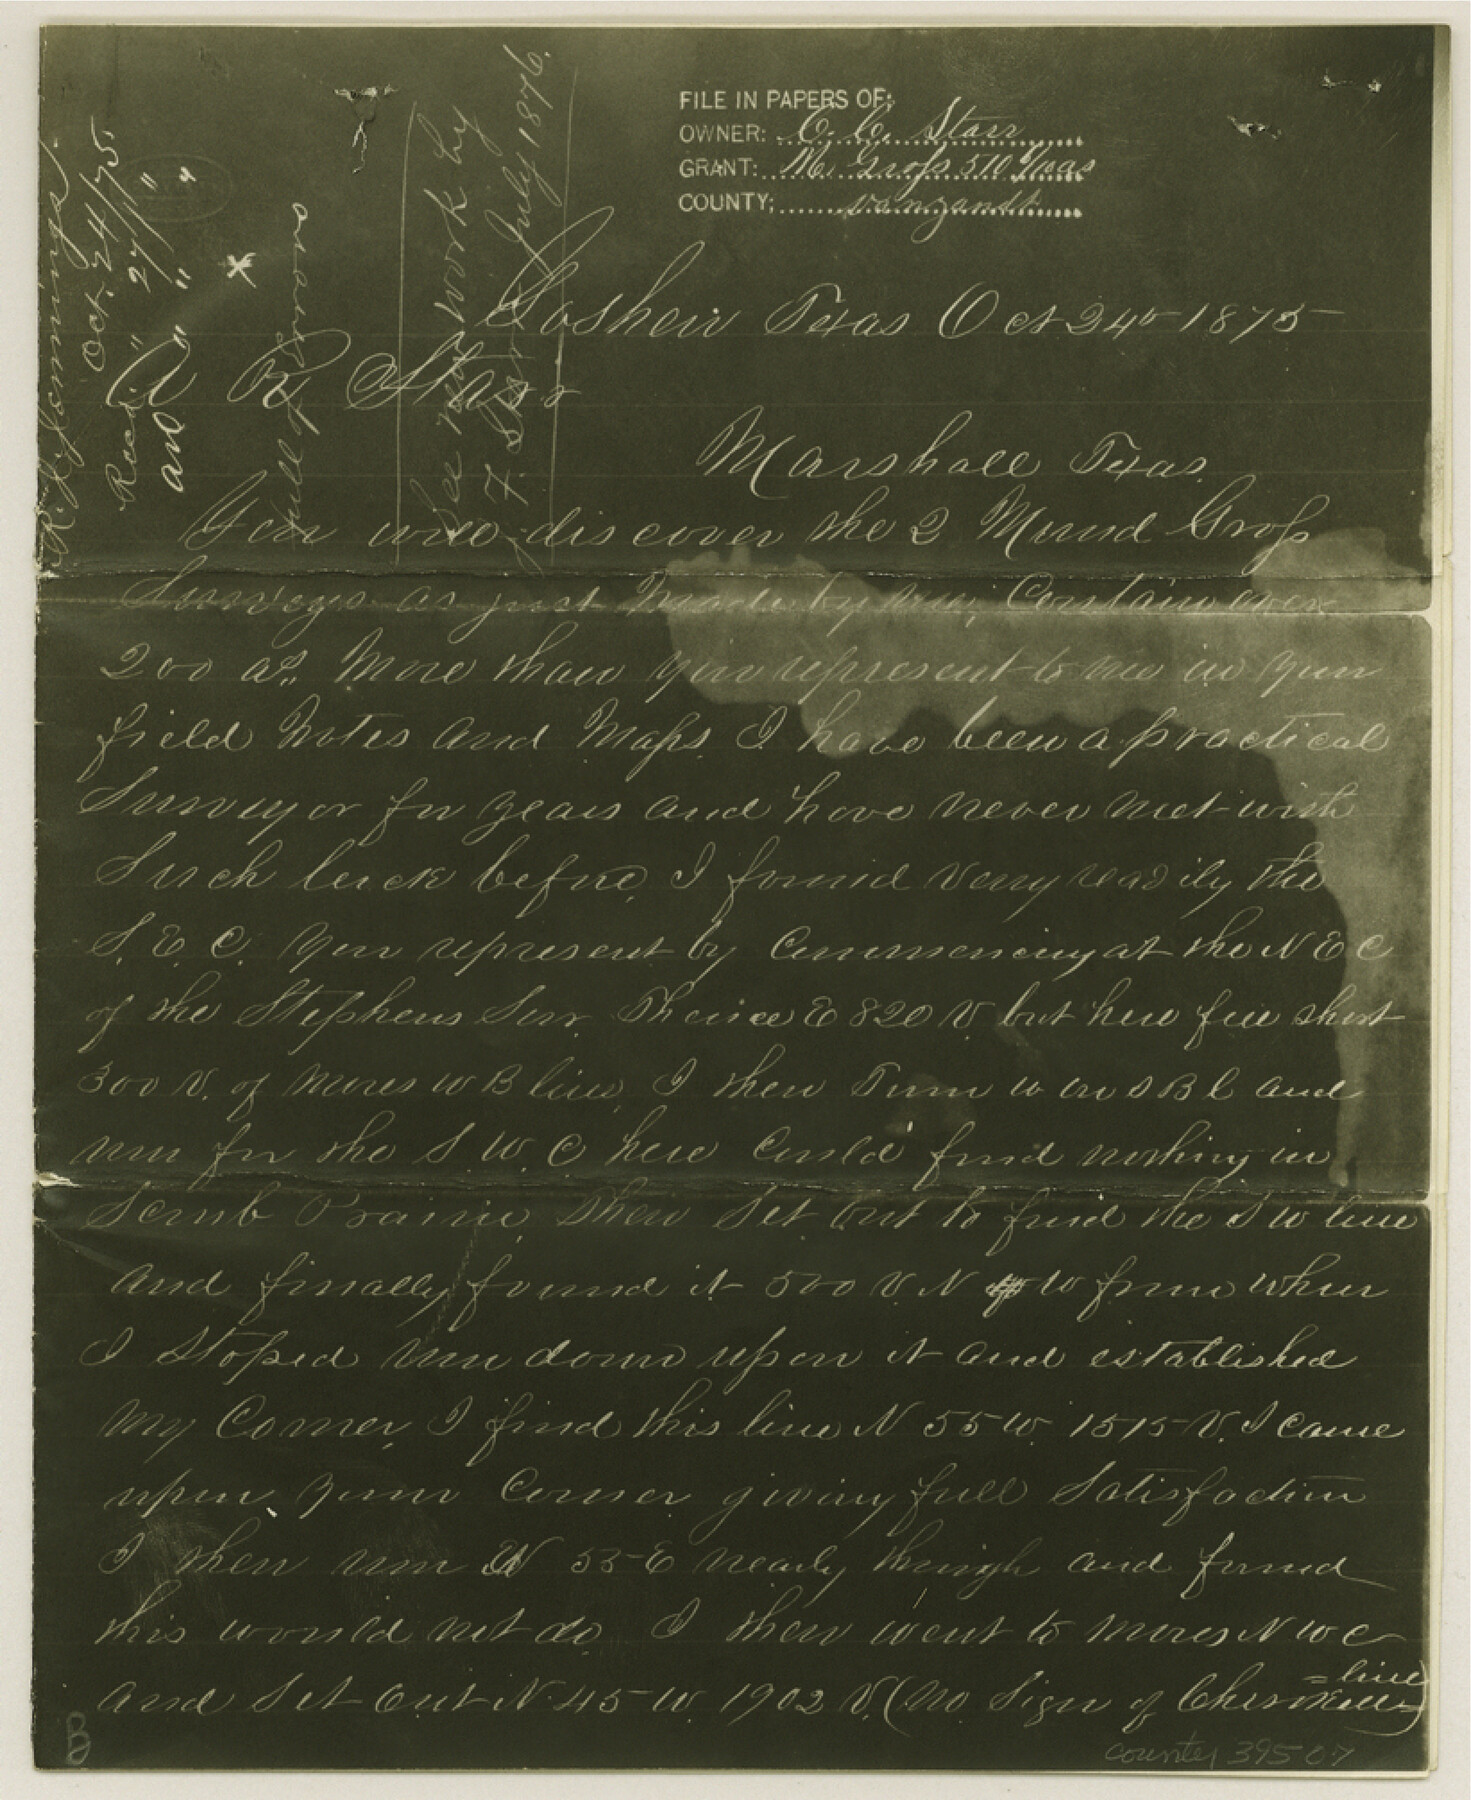 FILE IN PAPERS OF:
OWNER: C. C. Starr
GRANT: M. Gross 510 acs
COUNTY: Vanzandt
R. J. Jennings
Oct. 24/75
Recd " 27/ "
and " " "
full of errors
See new work by
F. Starr July 1876.
Goshen Texas Oct 24th 1875
A R Starr
Marshall Texas.
You will discover the 2 Mund Gross
Surveys as just made by me, Contain over
200 as. More than you represent to me in your
field Notes and Maps. I have been a practical
Surveyor for years and have never met with
Such luck before. I found very readily the
S. E. C. you represent by Commencing at the N E C
of the Stephens Sur. Thence E 820 V. but here fell short
300 V. of Mores W B line. I then Turn W on S B l and
run for the S. W. C here Could find nothing in
Scrub Prairie, then Set out to find the S W line
and finally found it 500 V. N W from where
I Stoped run down upon it and established
My Corner, I find this line N 55 W. 1515 V. I came
upon your Corner giving full Satisfaction
I then run N 55 E nearly through and found
this would not do. I then went to Mores N W C
and Set Out N. 45 W. 1902 V. (No Sign of Cherokee
= line)
B
counter 39507